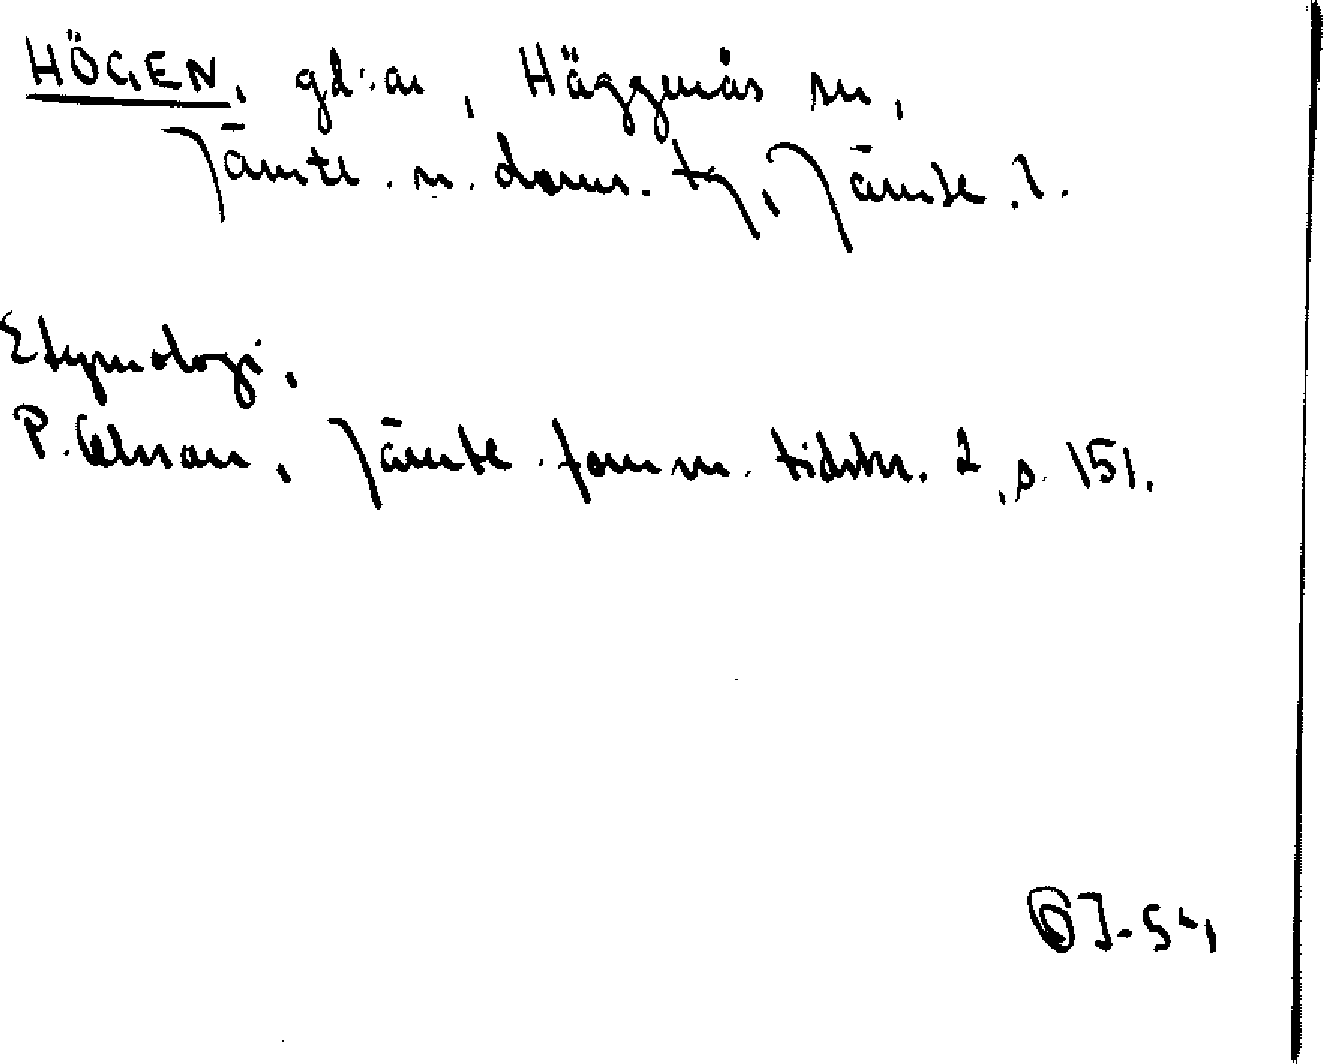 HÖGEN, gd:ar, Häggenås sn,
Jämtl. n. doms. tg, Jämtl. l.
Etymologi.
P. Olsson, Jämtl. fornm. tidskr. 2, s. 151.